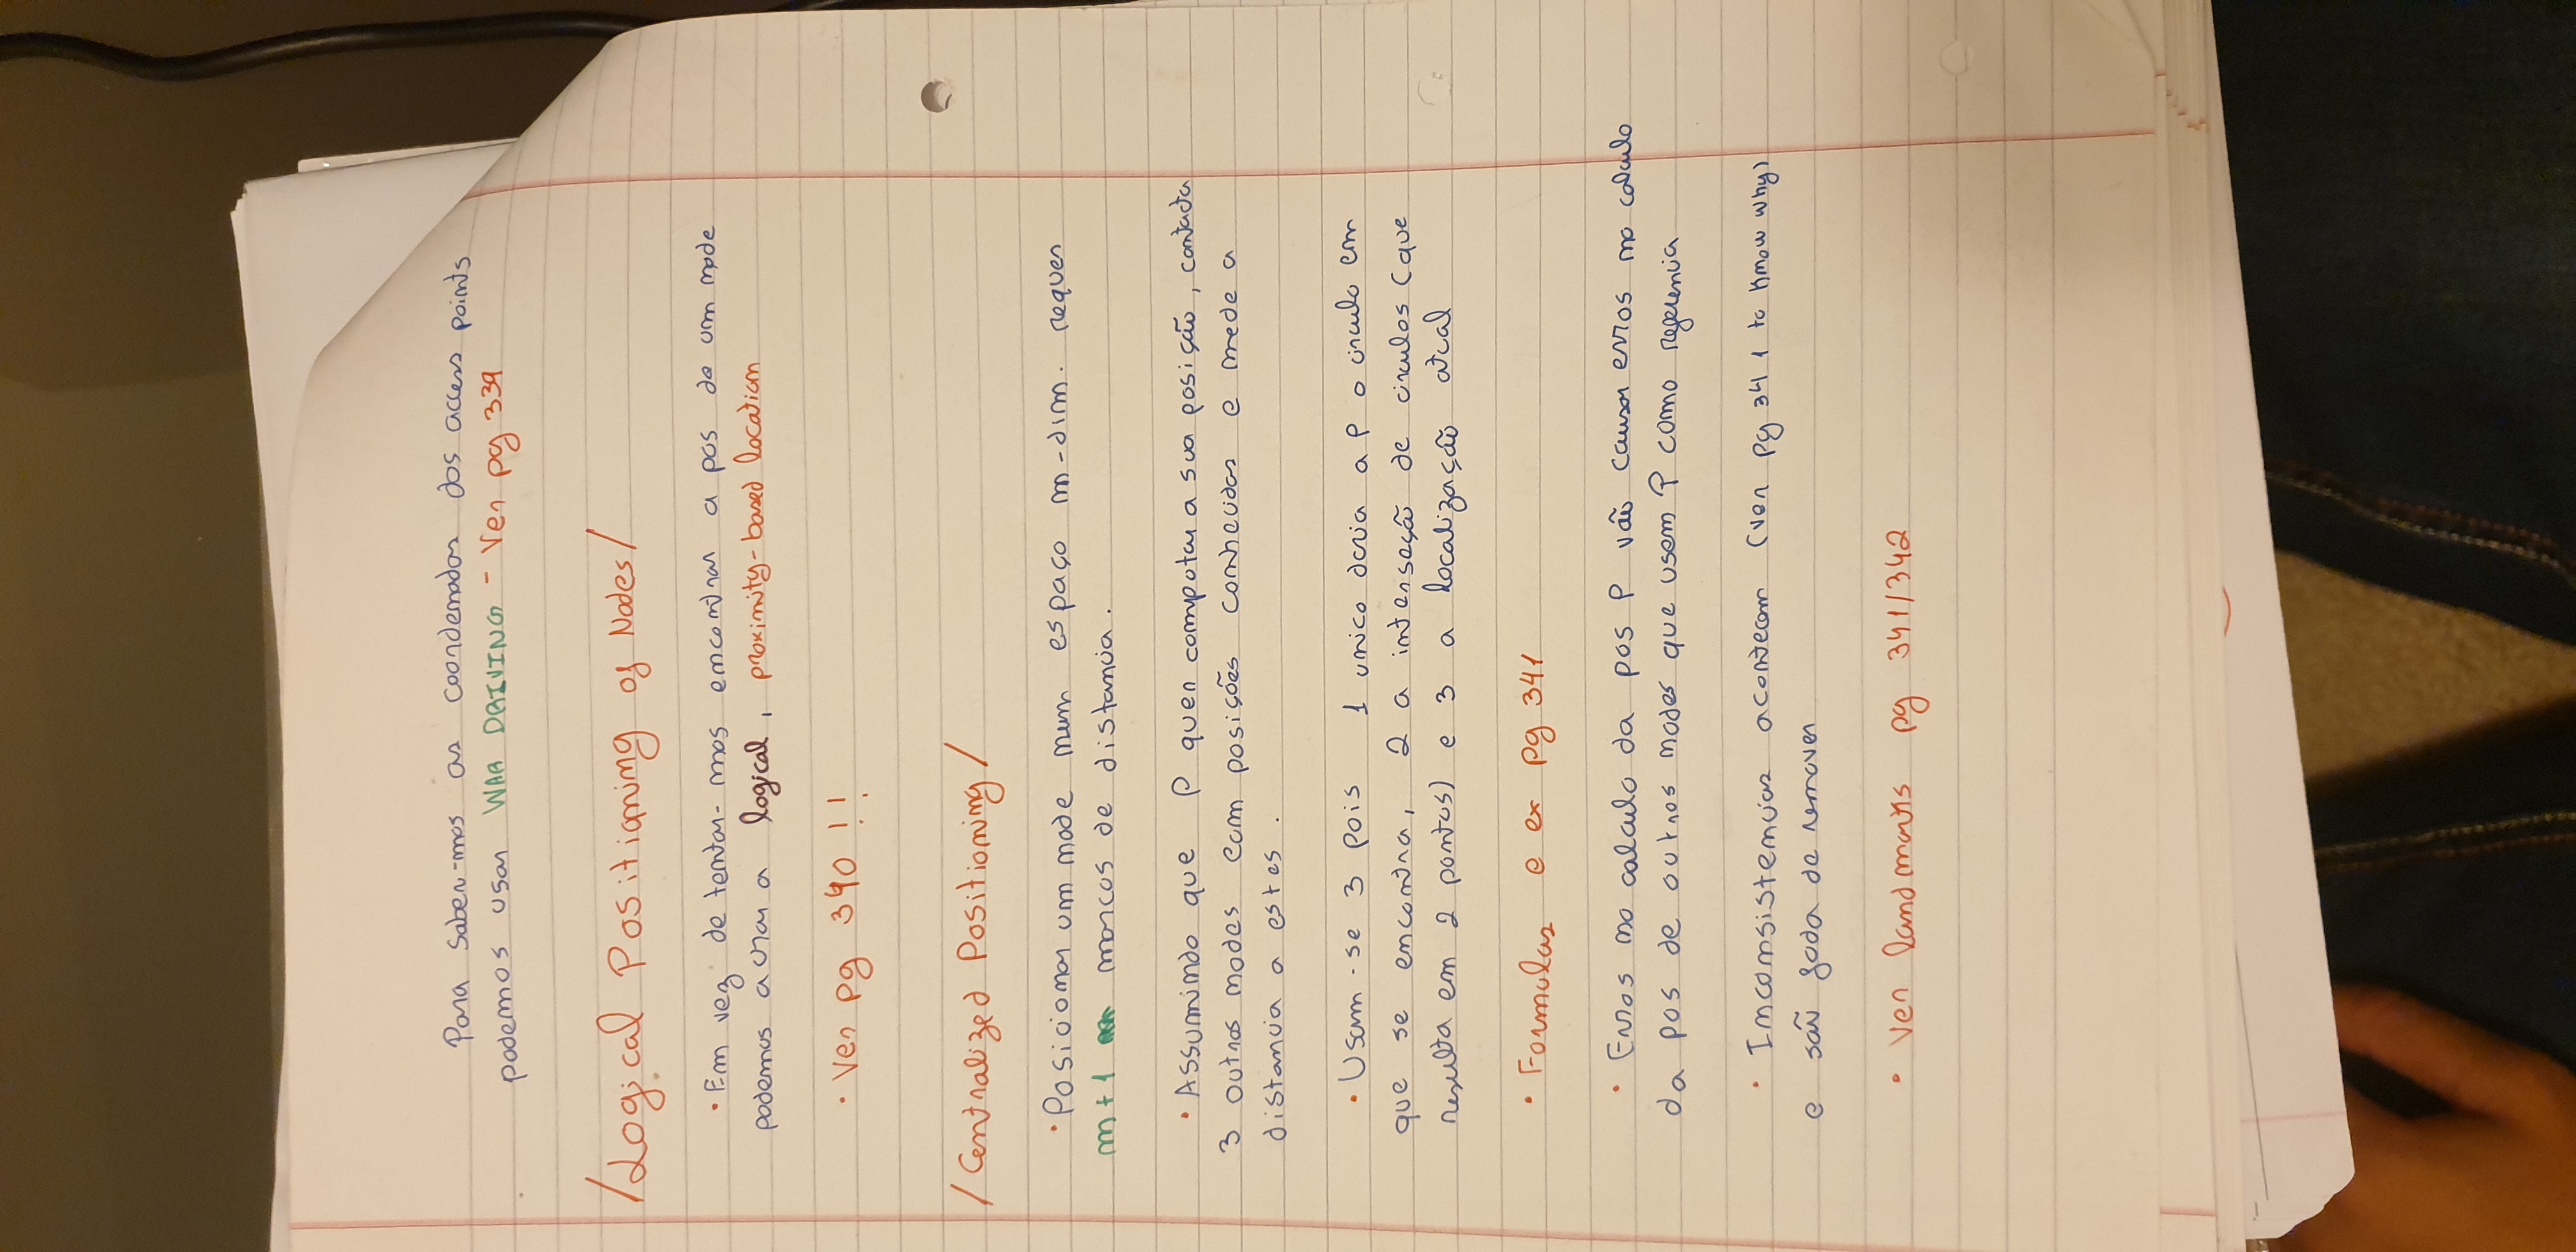 Para saber-mos as coordenadas dos access points
podemos usar WAR DRIVING - Ver pg 339
/Logical Positioning of Nodes/
• Em vez de tentar-mos encontrar a pos de um node
podemos achar a logical, proximity-based location
• Ver pg 340 !!
/Centralized Positioning/
• Posicionar um node num espaço m-dim. requer
m+1 marcos de distancia.
• Assumindo que P quer computar a sua posição, contacta
3 outros nodes com posições conhecidas e mede a
distancia a estes.
• Usam-se 3 pois 1 unico daria a P o circulo em
que se encontra, 2 a interseção de circulos (que
resulta em 2 pontos) e 3 a localização atual
• Formulas e ex pg 341
• Erros no calculo da pos P vão causar erros no calculo
da pos de outros nodes que usem P como referencia
• Inconsistencias acontecem (ver pg 341 to know why)
e são foda de remover
• Ver landmarks pg 341/342